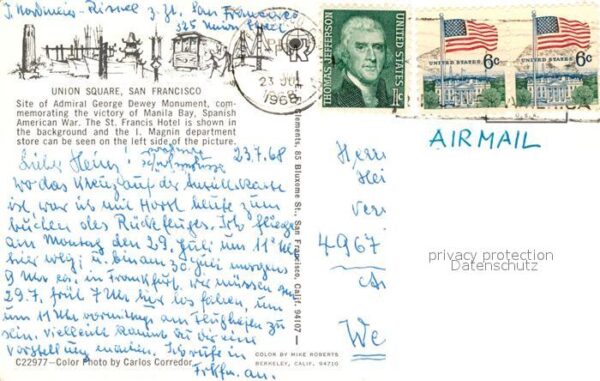 z. Zt. San Francisco
525
23 JUL
1968
THOMAS JEFFERSON
UNITED STATES
1c
UNITED STATES
6c
UNITED STATES
6c
UNION SQUARE, SAN FRANCISCO
Site of Admiral George Dewey Monument, com-
memorating the victory of Manila Bay, Spanish
American War. The St. Francis Hotel is shown in
the background and the I. Magnin department
store can be seen on the left side of the picture.
AIRMAIL
23.7.68
Lieber Heinz!
wo das Kreuz auf der Ansichtskarte
ist, war ich mit Horst heute zum
buchen des Rückfluges. Ich fliege
am Montag den 29. Juli um 11h
hier weg u. bin am 30. Juli morgens
9 Uhr in Frankfurt. Wir müssen am
29.7. früh 7 Uhr hier los fahren, um
um 11h vormittags am Flughafen zu
sein. Vielleicht kannst du dir eine
Vorstellung machen. Ich rufe in
Frkfm. an.
Herrn
4967
We
privacy protection
Datenschutz
Elements, 85 Bluxome St., San Francisco, Calif. 94107
COLOR BY MIKE ROBERTS
BERKELEY, CALIF. 94710
C22977—Color Photo by Carlos Corredor.